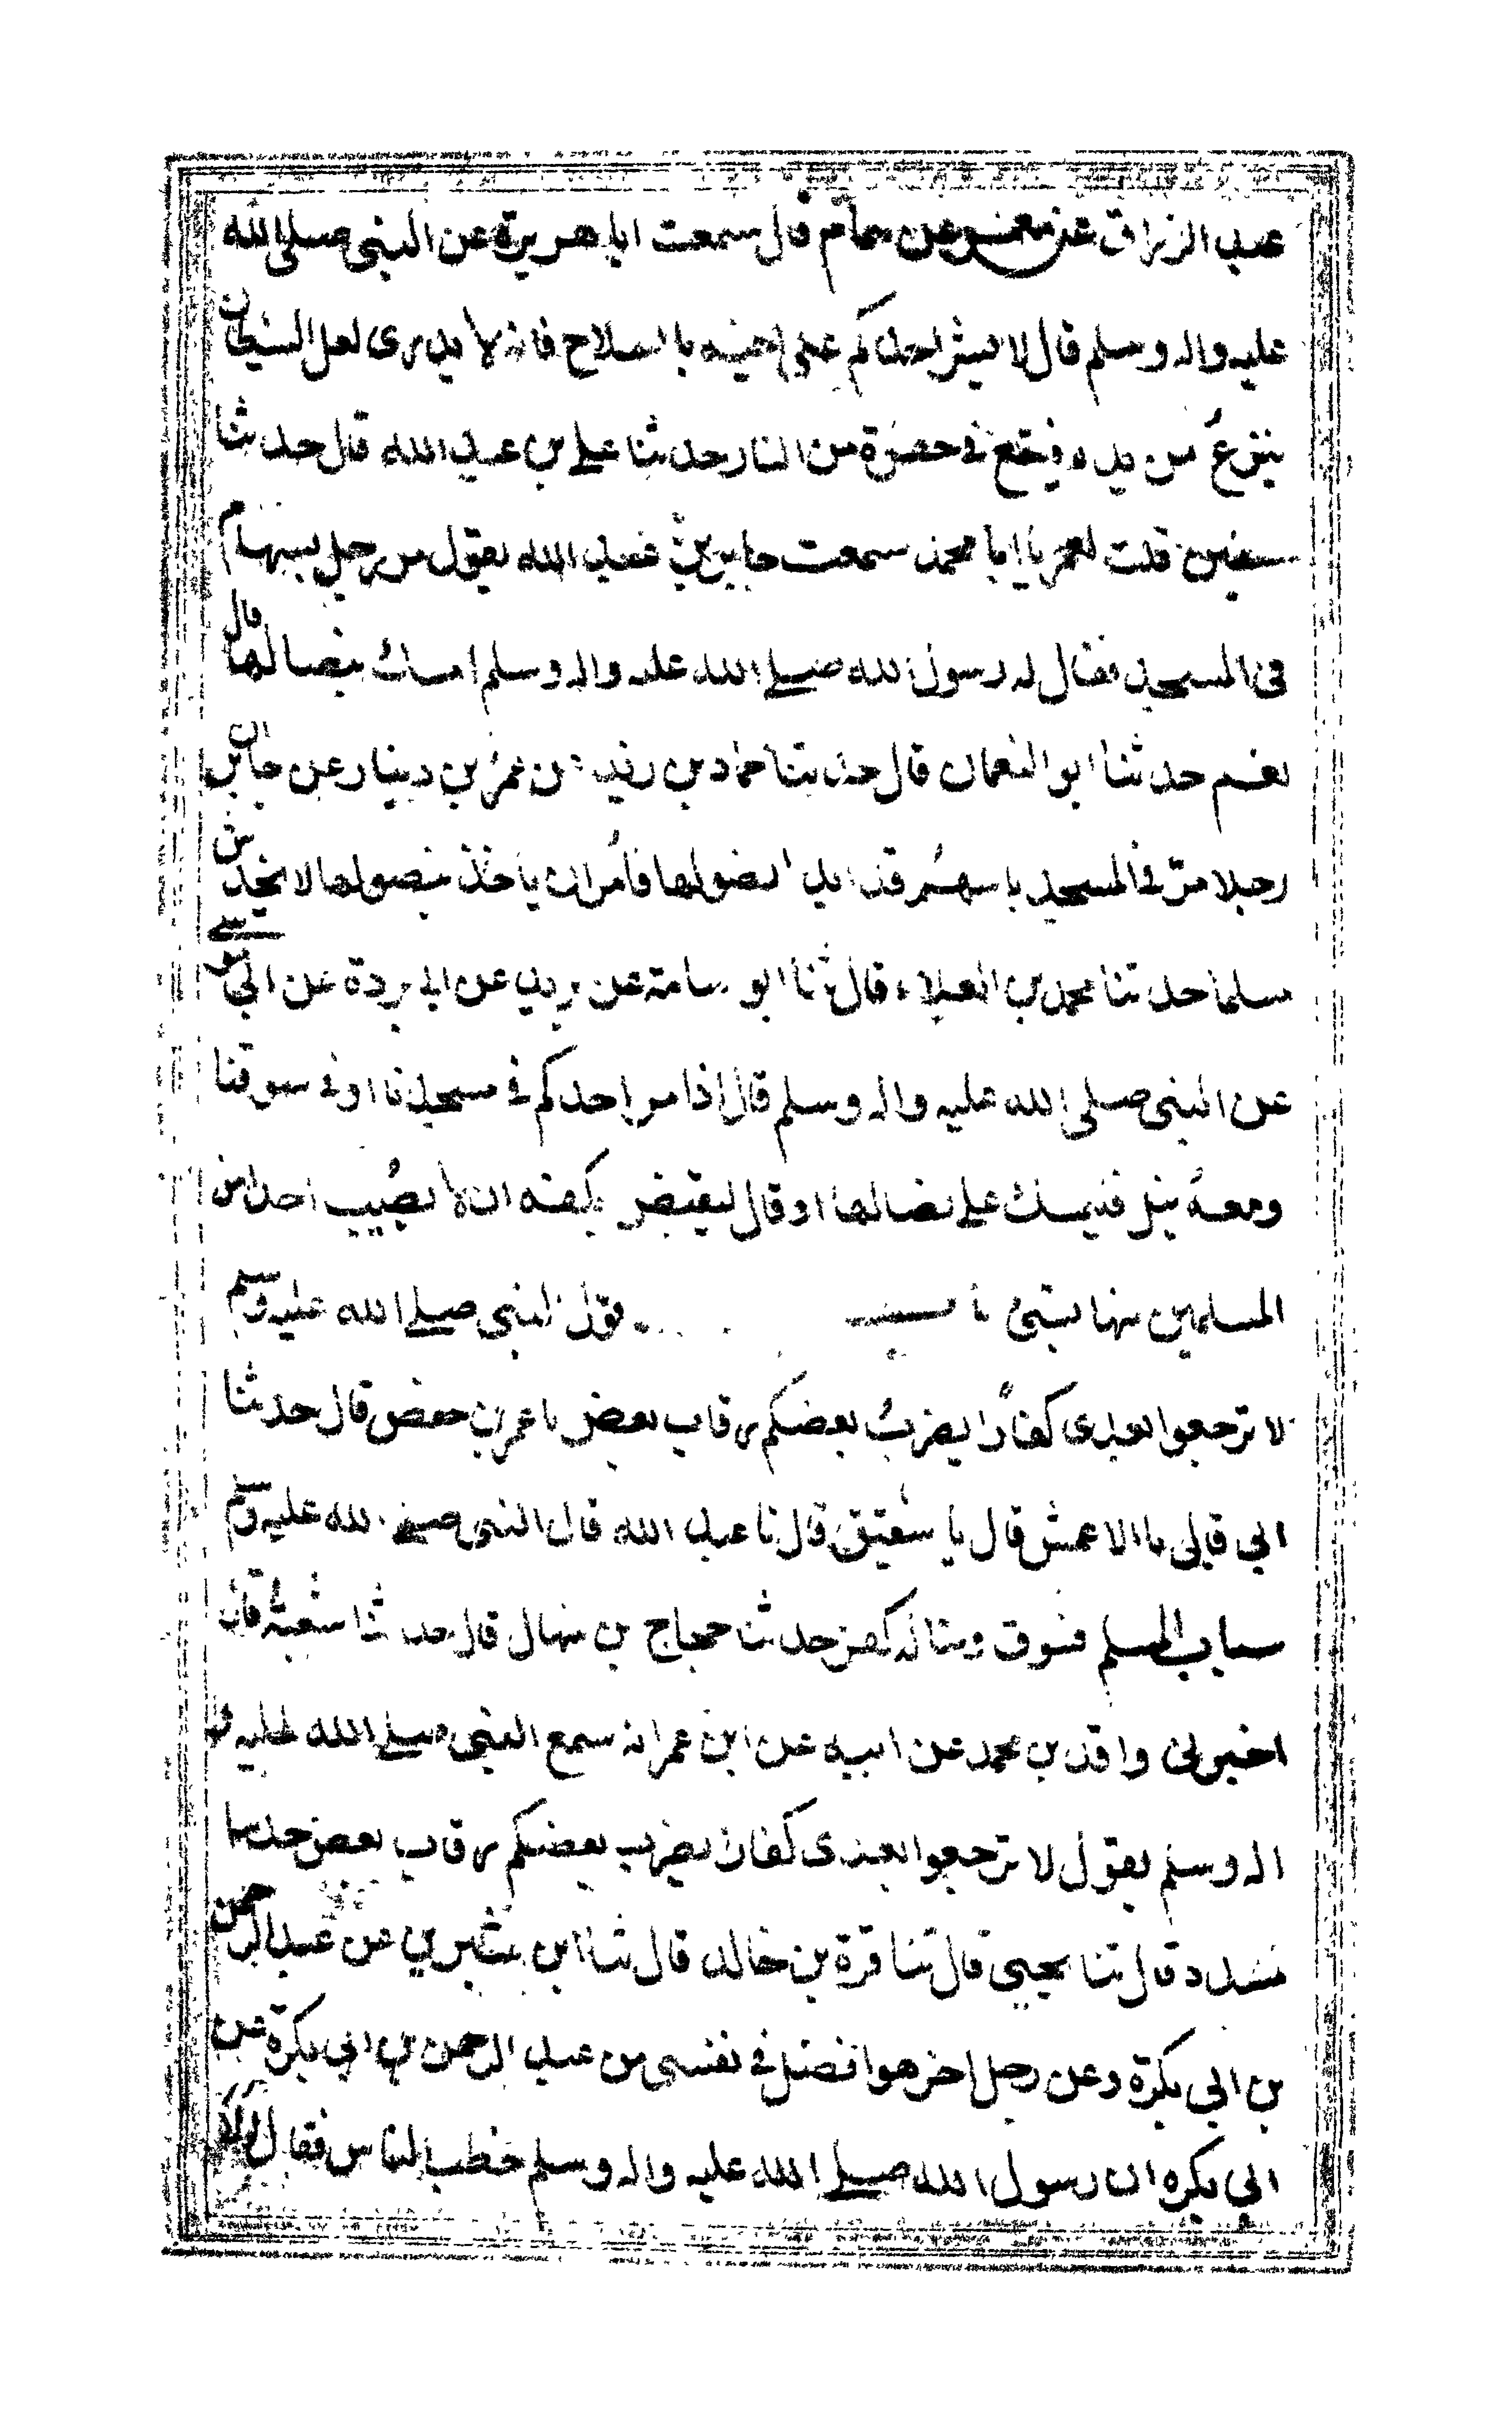 عبد الرزاق عن معمر عن همام قال سمعت ابا هريرة عن النبي صلى الله
عليه واله وسلم قال لا يشر احدكم على اخيه بالسلاح فانه لا يدرى لعل الشيطان
ينزع من يده فيقع في حفرة من النار حدثنا علي بن عبد الله قال حدثنا
سفين قلت لعمر يا ابا محمد سمعت جابر بن عبد الله يقول مر رجل بسهام
في المسجد فقال له رسول الله صلى الله عليه واله وسلم امسك بنصالها قال
نعم حدثنا ابو النعمان قال حدثنا حماد بن زيد عن عمر بن دينار عن جابر ان
رجلا مر في المسجد باسهم قد ابدا نصولها فامر ان ياخذ بنصولها لا يخدش
مسلما حدثنا محمد بن العلاء قال ثنا ابو سامة عن بريد عن ابي بردة عن ابي موسى
عن النبي صلى الله عليه واله وسلم قال اذا مر احدكم في مسجدنا او في سوقنا
ومعه نبل فليمسك على نصالها او قال ليقبض بكفه ان لا يصيب احدا من
المسلمين منها بشئ باب قول النبي صلى الله عليه وسلم
لا ترجعوا بعدى كفارا يضرب بعضكم رقاب بعض نا عمر بن حفص قال حدثنا
ابي قال نا الاعمش قال نا شقيق قال نا عبد الله قال النبي صلى الله عليه وسلم
سباب المسلم فسوق وقتاله كفر حدثنا حجاج بن منهال قال حدثنا شعبة قال
اخبرني واقد بن محمد عن ابيه عن ابن عمر انه سمع النبي صلى الله عليه و
اله وسلم يقول لا ترجعوا بعدى كفارا يضرب بعضكم رقاب بعض حدثنا
مسدد قال ثنا يحيى قال ثنا قرة بن خالد قال ثنا ابن سيرين عن عبد الرحمن
بن ابي بكرة وعن رجل اخر هو افضل في نفسي من عبد الرحمن بن ابي بكرة عن
ابي بكره ان رسول الله صلى الله عليه واله وسلم خطب الناس فقال